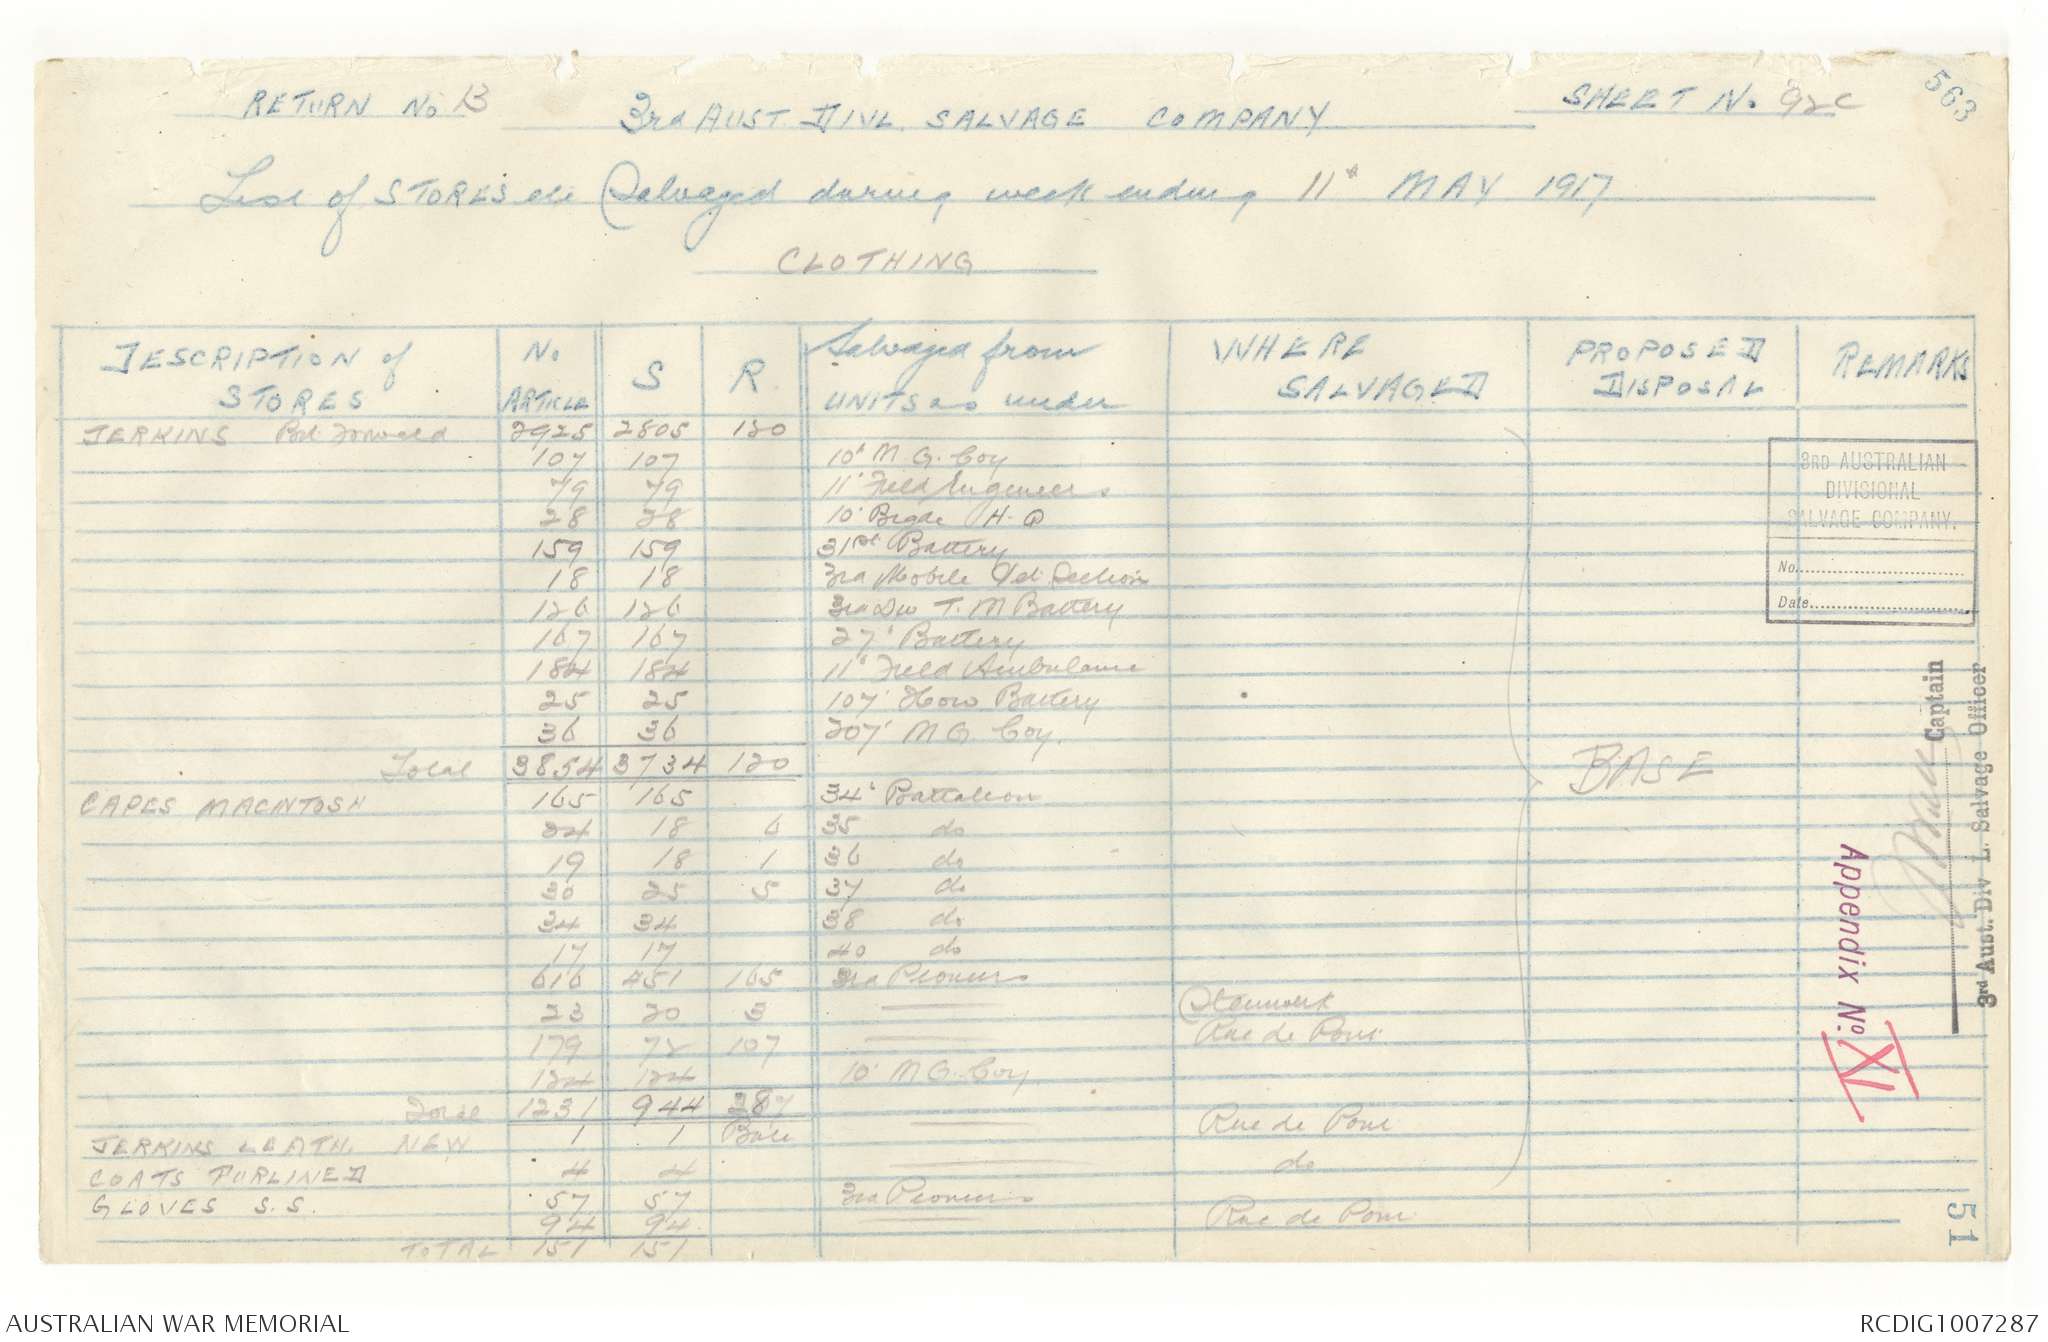 RETURN No B
3rd AUST. DIVL. SALVAGE COMPANY
SHEET No. 92c
563
List of STORES etc Salvaged during week ending 11th MAY 1917
CLOTHING
DESCRIPTION of STORES No ARTICLE S R Salvaged from UNITS as under WHERE SALVAGED PROPOSED DISPOSAL REMARKS
JERKINS Bot Forward 2925 2805 120
107 107 10th M.G. Coy
79 79 11th Field Engineers
28 28 10th Bigde H.Q
159 159 31st Battery
18 18 3rd Mobile Vet Section
126 126 3rd Div T.M Battery
167 167 27th Battery
184 184 11th Field Ambulance
25 25 107th How Battery
36 36 207th M.G. Coy.
Total 3854 3734 120
CAPES MACINTOSH 165 165 34th Battalion
24 18 6 35 do
19 18 1 36 do
30 25 5 37 do
34 34 38 do
17 17 40 do
616 451 165 3rd Pioneers
23 20 3 Steenwerk
179 72 107 Rue de Pont
124 124 10th M.G. Coy
Total 1231 944 287
JERKINS LEATH. NEW 1 1 Bale Rue de Pont
COATS FURLINED 4 4 do
GLOVES S.S. 57 57 3rd Pioneers
94 94 Rue de Pont
TOTAL 151 151
BASE
3RD AUSTRALIAN
DIVISIONAL
SALVAGE COMPANY.
No.
Date
Captain
3rd Aust. Div L. Salvage Officer
Appendix No. XI
51
AUSTRALIAN WAR MEMORIAL
RCDIG1007287